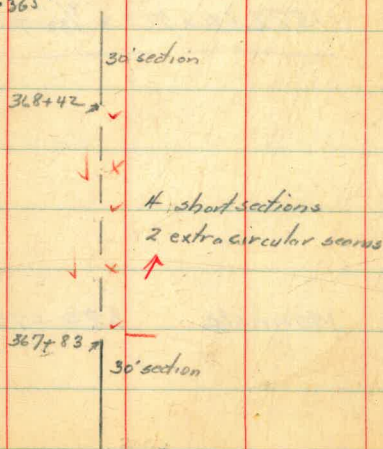 365
30' section
368+42
4 short sections
2 extra circular seams
367+83
30' section